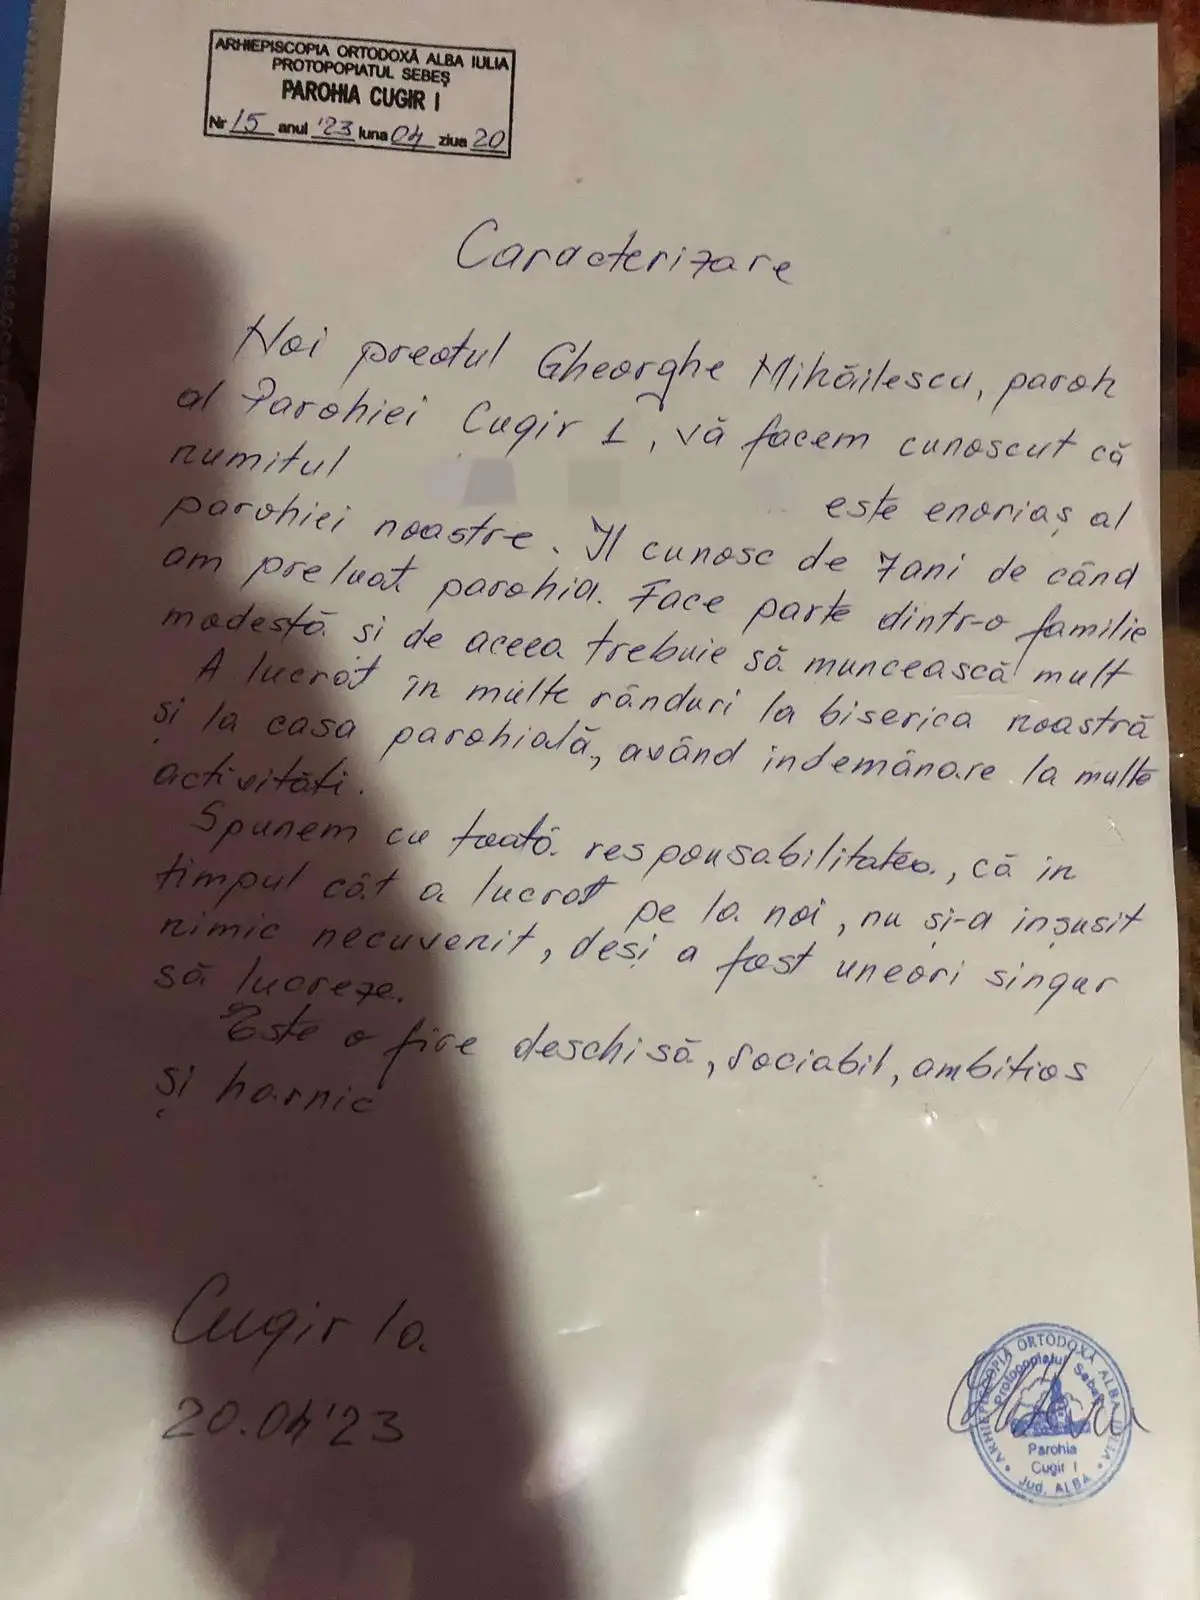 ARHIEPISCOPIA ORTODOXĂ ALBA IULIA
PROTOPOPIATUL SEBEȘ
PAROHIA CUGIR I
Nr 15 anul '23 luna 04 ziua 20
Caracterizare
Noi preotul Gheorghe Mihăilescu, paroh
al Parohiei Cugir 1, vă facem cunoscut că
numitul este enoriaș al
parohiei noastre. Il cunosc de 7ani de când
am preluat parohia. Face parte dintr-o familie
modestă și de aceea trebuie să muncească mult
A lucrat în multe rânduri la biserica noastră
și la casa parohială, având indemânare la multe
activităti.
Spunem cu toată responsabilitatea, că in
timpul cât a lucrat pe la noi, nu și-a insusit
nimic necuvenit, deși a fost uneori singur
să lucreze.
Este o fire deschisă, sociabil, ambitios
și harnic
Cugir la
20.04'23
ARHIEPISCOPIA ORTODOXĂ ALBA IULIA
Protopopiatul Sebeș
Parohia
Cugir I
Jud. ALBA